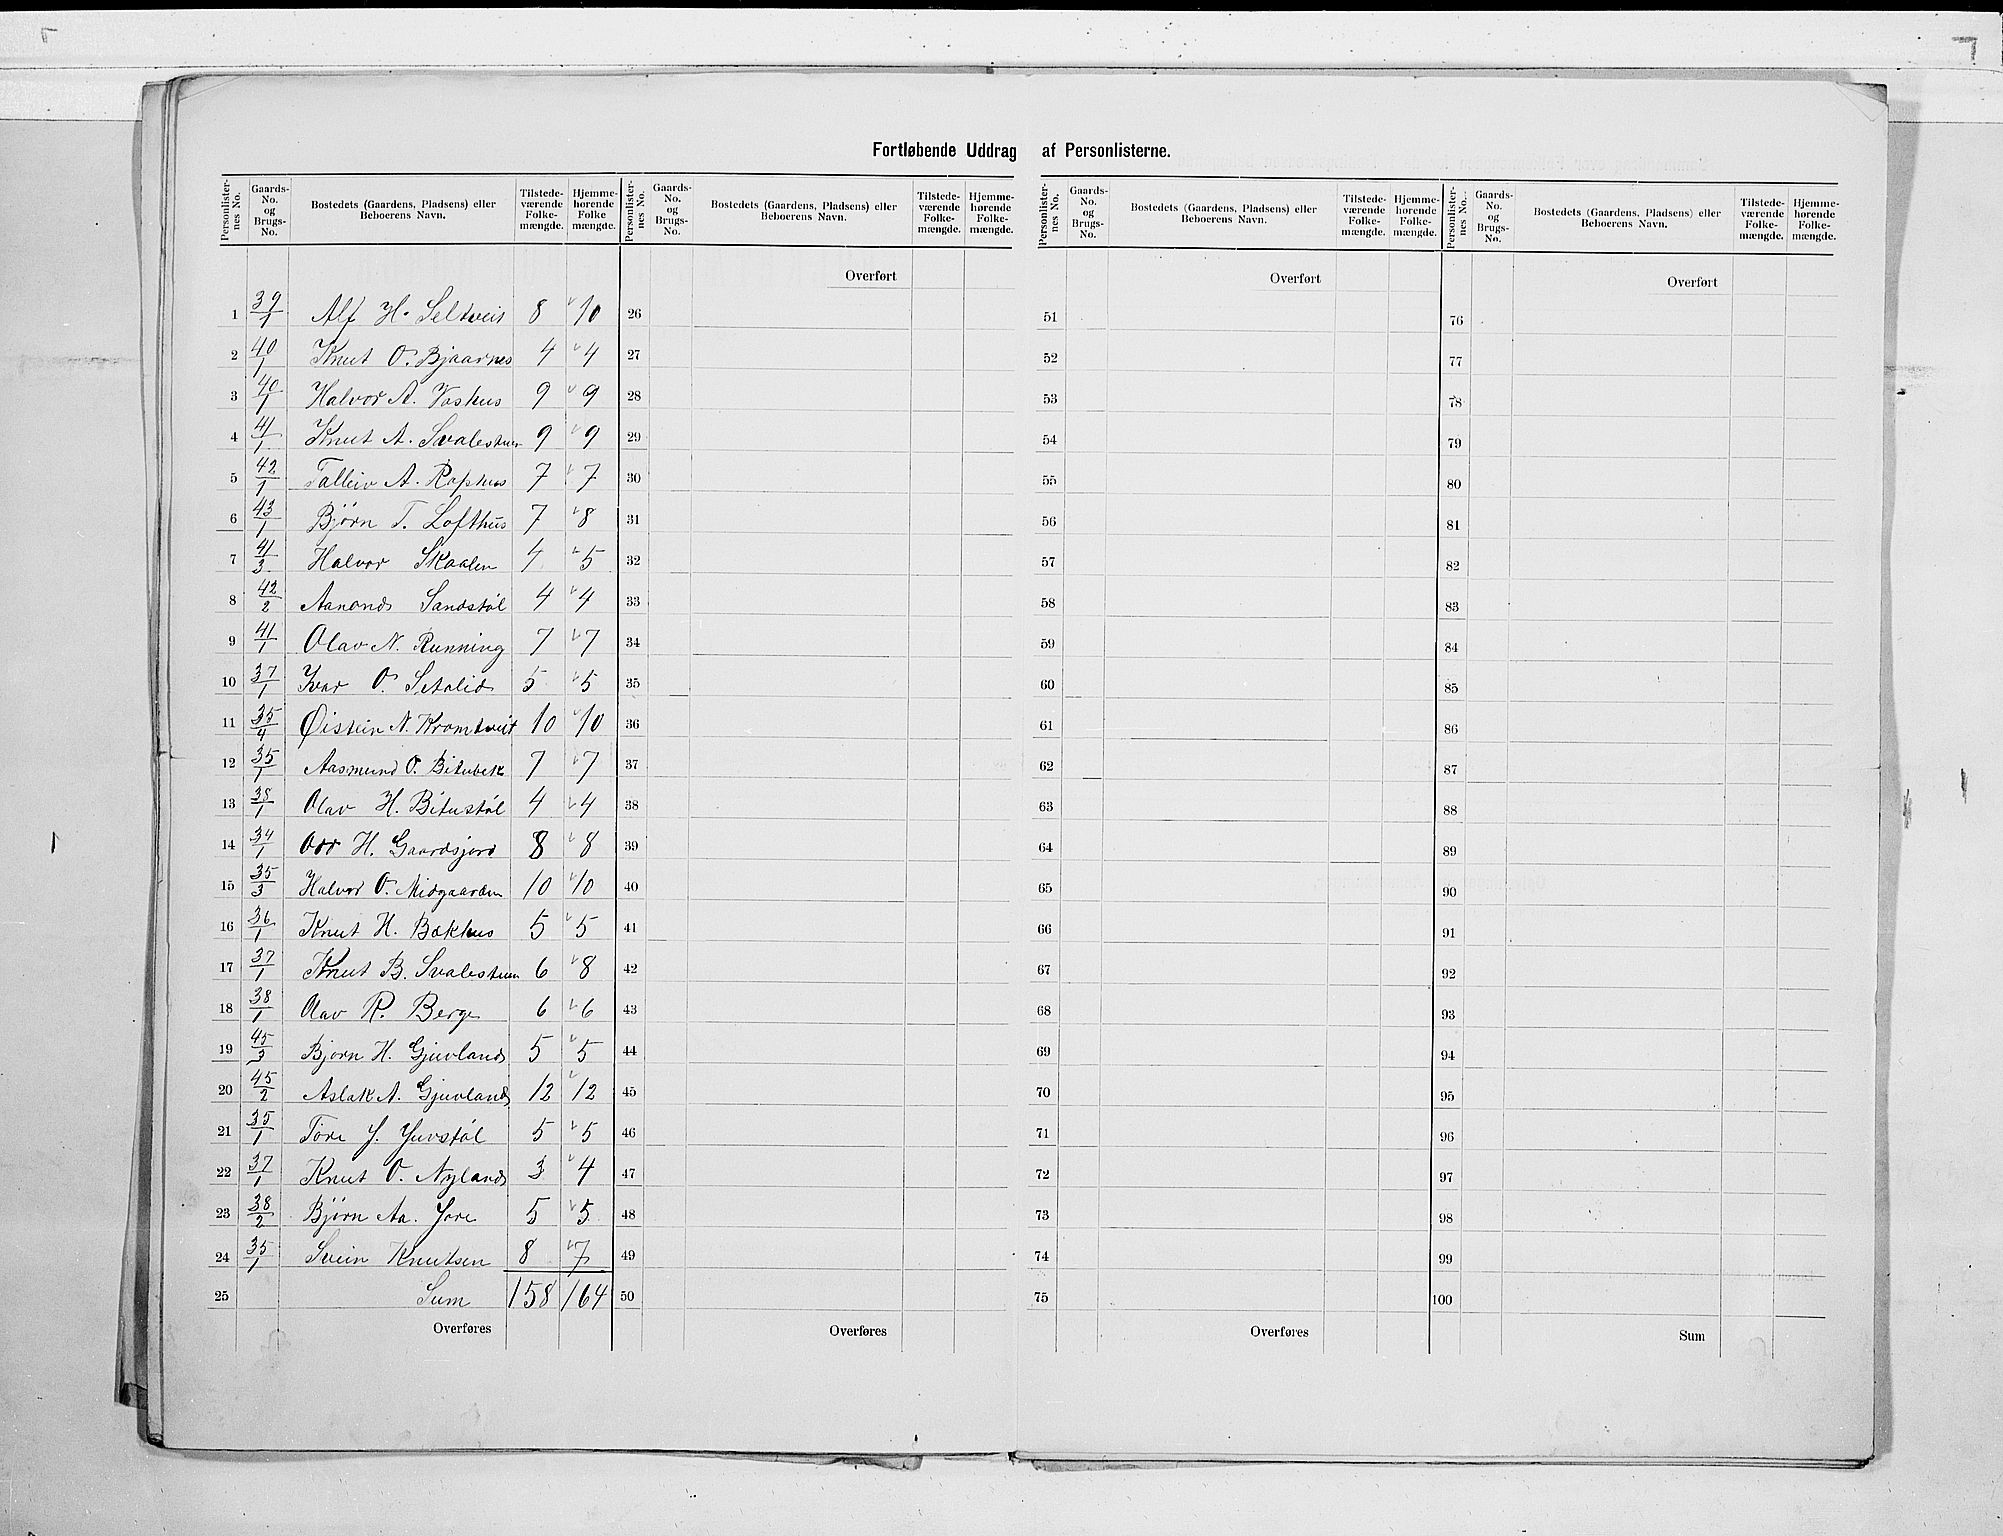 Fortløbende Uddrag af Personlisterne.
Personlister-nes No. | Gaards-No. og Brugs-No. | Bostedets (Gaardens, Pladsens) eller Beboerens Navn. | Tilstede-værende Folke-mængde. | Hjemme-hørende Folke mængde.
Personlister-nes No. | Gaards-No. og Brugs-No. | Bostedets (Gaardens, Pladsens) eller Beboerens Navn. | Tilstede-værende Folke-mængde. | Hjemme-hørende Folke-mængde.
Personlister-nes No. | Gaards-No. og Brugs-No. | Bostedets (Gaardens, Pladsens) eller Beboerens Navn. | Tilstede-værende Folke-mængde. | Hjemme-hørende Folke-mængde.
Personlister-nes No. | Gaards-No. og Brugs-No. | Bostedets (Gaardens, Pladsens) eller Beboerens Navn. | Tilstede-værende Folke-mængde. | Hjemme-hørende Folke-mængde.
Overført Overført Overført
1 39/1 Alf H. Seltveit 8 10 26 51 76
2 40/1 Knut O. Bjaarnes 4 4 27 52 77
3 40/1 Halvor A. Voshus 9 9 28 53 78
4 41/1 Knut A. Svalestuen 9 9 29 54 79
5 42/1 Talleiv A. Raphus 7 7 30 55 80
6 43/1 Bjørn T. Lofthus 7 8 31 56 81
7 41/3 Halvor Skaalen 4 5 32 57 82
8 42/2 Aanond Sandstøl 4 4 33 58 83
9 41/1 Olav N. Running 7 7 34 59 84
10 37/1 Ivar O. Setalid 5 5 35 60 85
11 35/4 Øistein N. Kromtveit 10 10 36 61 86
12 35/1 Aasmund O. Bitubek 7 7 37 62 87
13 38/1 Olav H. Bitustøl 4 4 38 63 88
14 34/1 Ove H. Gaardsjord 8 8 39 64 89
15 35/3 Halvor O. Midgaarden 10 10 40 65 90
16 36/1 Knut H. Bakhus 5 5 41 66 91
17 37/1 Knut B. Svalestuen 6 8 42 67 92
18 38/1 Olav R. Berge 6 6 43 68 93
19 45/3 Bjørn H. Gjuvland 5 5 44 69 94
20 45/2 Aslak A. Gjuvland 12 12 45 70 95
21 35/1 Tore J. Juvstøl 5 5 46 71 96
22 37/1 Knut O. Nyland 3 4 47 72 97
23 38/2 Bjørn Aa. Jore 5 5 48 73 98
24 35/1 Svein Knutsen 8 7 49 74 99
25 Sum 158 164 50 75 100
Overføres Overføres Overføres Sum